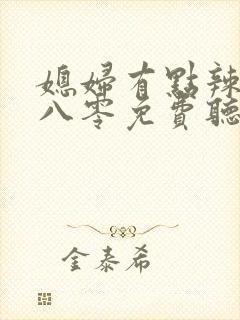 媳婦有點辣
八零免費聽
金泰希